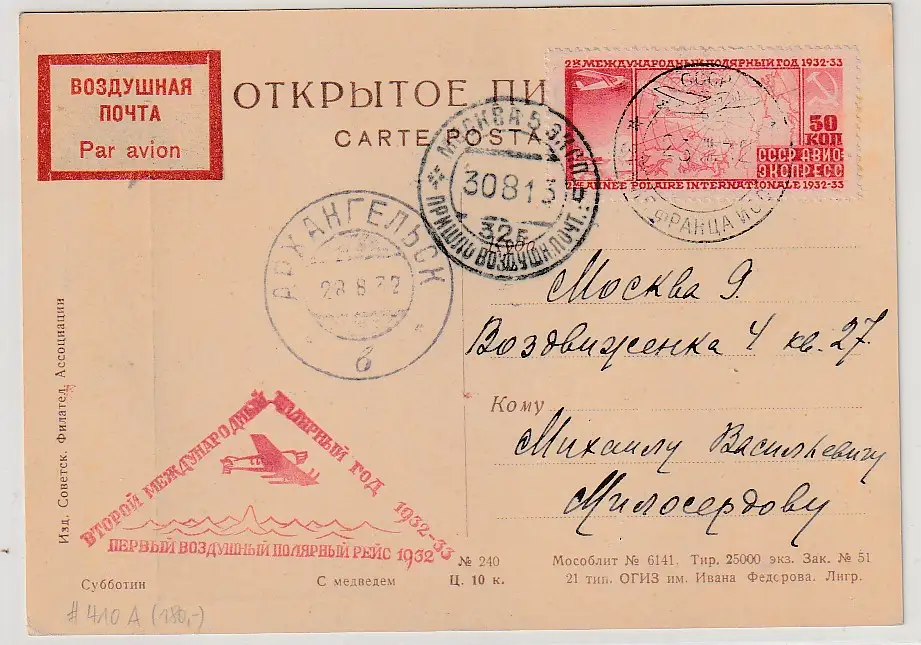 ВОЗДУШНАЯ
ПОЧТА
Par avion
ОТКРЫТОЕ ПИ
CARTE POSTA
2й МЕЖДУНАРОДНЫЙ ПОЛЯРНЫЙ ГОД 1932-33
50
КОП
СССР АВИО
ЭКСПРЕСС
2me ANNEE POLAIRE INTERNATIONALE 1932-33
СССР
ФРАНЦА ИОС
МОСКВА 5 ЭКСП
30 8 13
32г
ПРИШЛО ВОЗДУШН. ПОЧТ.
АРХАНГЕЛЬСК
28 8 32
б
Москва 9.
Воздвиженка 4 кв. 27.
Кому
Михаилу Васильевичу
Милосердову
Изд. Советск. Филател. Ассоциации
ВТОРОЙ МЕЖДУНАРОДНЫЙ ПОЛЯРНЫЙ ГОД 1932-33
ПЕРВЫЙ ВОЗДУШНЫЙ ПОЛЯРНЫЙ РЕЙС 1932
Субботин
С медведем
№ 240
Ц. 10 к.
Мособлит № 6141. Тир. 25000 экз. Зак. № 51
21 тип. ОГИЗ им. Ивана Федорова. Лигр.
# 410 A (180,-)